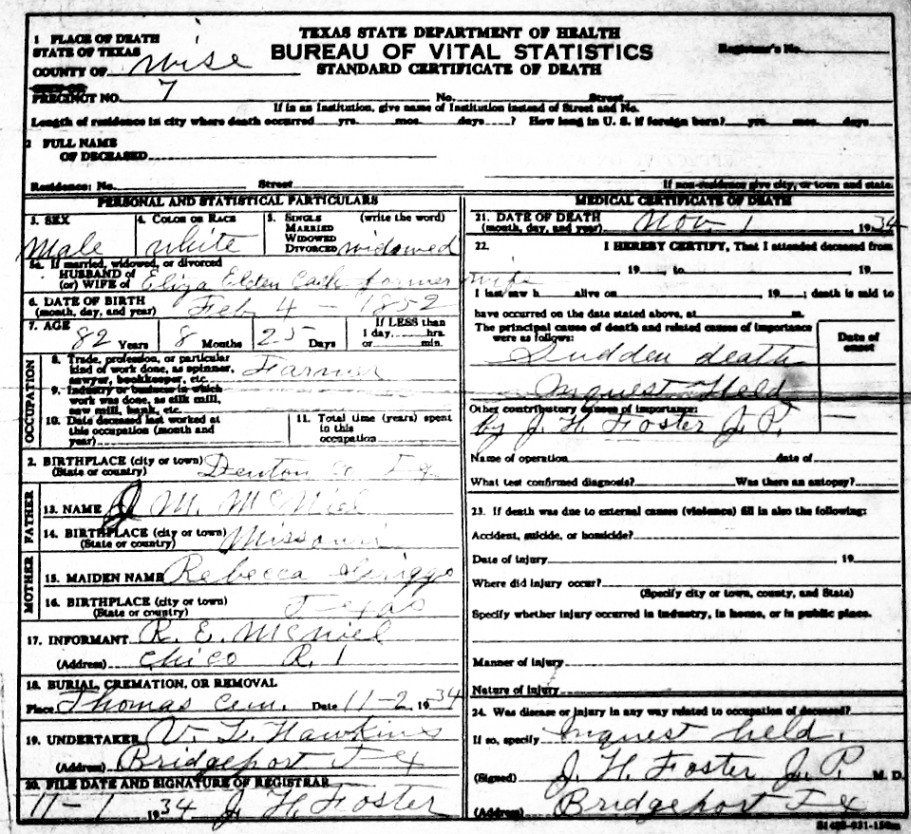 TEXAS STATE DEPARTMENT OF HEALTH
BUREAU OF VITAL STATISTICS
STANDARD CERTIFICATE OF DEATH
Registrar's No.
1 PLACE OF DEATH
STATE OF TEXAS
COUNTY OF Wise
PRECINCT NO. 7 No. Street
If in an Institution, give name of Institution instead of Street and No.
Length of residence in city where death occurred yrs. mos. days ? How long in U. S. if foreign born? yrs. mos. days
2 FULL NAME
OF DECEASED
Residence: No. Street If non-residence give city, or town and state.
PERSONAL AND STATISTICAL PARTICULARS
3. SEX Male
4. COLOR OR RACE white
5. SINGLE MARRIED WIDOWED DIVORCED (write the word) widowed
5a. If married, widowed, or divorced
HUSBAND of
(or) WIFE of Eliza Elden Cash former wife
6. DATE OF BIRTH
(month, day, and year) Feb 4 - 1852
7. AGE 82 Years 8 Months 25 Days If LESS than 1 day, hrs. or min.
OCCUPATION
8. Trade, profession, or particular
kind of work done, as spinner,
sawyer, bookkeeper, etc. Farmer
9. Industry or business in which
work was done, as silk mill,
saw mill, bank, etc.
10. Date deceased last worked at
this occupation (month and
year)
11. Total time (years) spent
in this
occupation
2. BIRTHPLACE (city or town)
(State or country) Denton Co Tex
FATHER
13. NAME J M. McNiel
14. BIRTHPLACE (city or town)
(State or country) Missouri
MOTHER
15. MAIDEN NAME Rebecca Griggs
16. BIRTHPLACE (city or town)
(State or country) Texas
17. INFORMANT R. E. McNiel
(Address) Chico R. 1
18. BURIAL, CREMATION, OR REMOVAL
Place Thomas Cem. Date 11-2, 1934
19. UNDERTAKER V. L. Hawkins
(Address) Bridgeport Tex
20. FILE DATE AND SIGNATURE OF REGISTRAR
11-1 1934 J. H. Foster
MEDICAL CERTIFICATE OF DEATH
21. DATE OF DEATH
(month, day, and year) Nov. 1 1934
22. I HEREBY CERTIFY, That I attended deceased from
, 19 to , 19
I last saw h alive on , 19 ; death is said to
have occurred on the date stated above, at m.
The principal cause of death and related causes of importance
were as follows:
Date of onset
Sudden death
Inquest Held
Other contributory causes of importance:
by J. H. Foster J. P.
Name of operation date of
What test confirmed diagnosis? Was there an autopsy?
23. If death was due to external causes (violence) fill in also the following:
Accident, suicide, or homicide?
Date of injury , 19
Where did injury occur?
(Specify city or town, county, and State)
Specify whether injury occurred in industry, in home, or in public place.
Manner of injury
Nature of injury
24. Was disease or injury in any way related to occupation of deceased?
If so, specify Inquest held.
(Signed) J. H. Foster J. P. M. D.
(Address) Bridgeport Tex